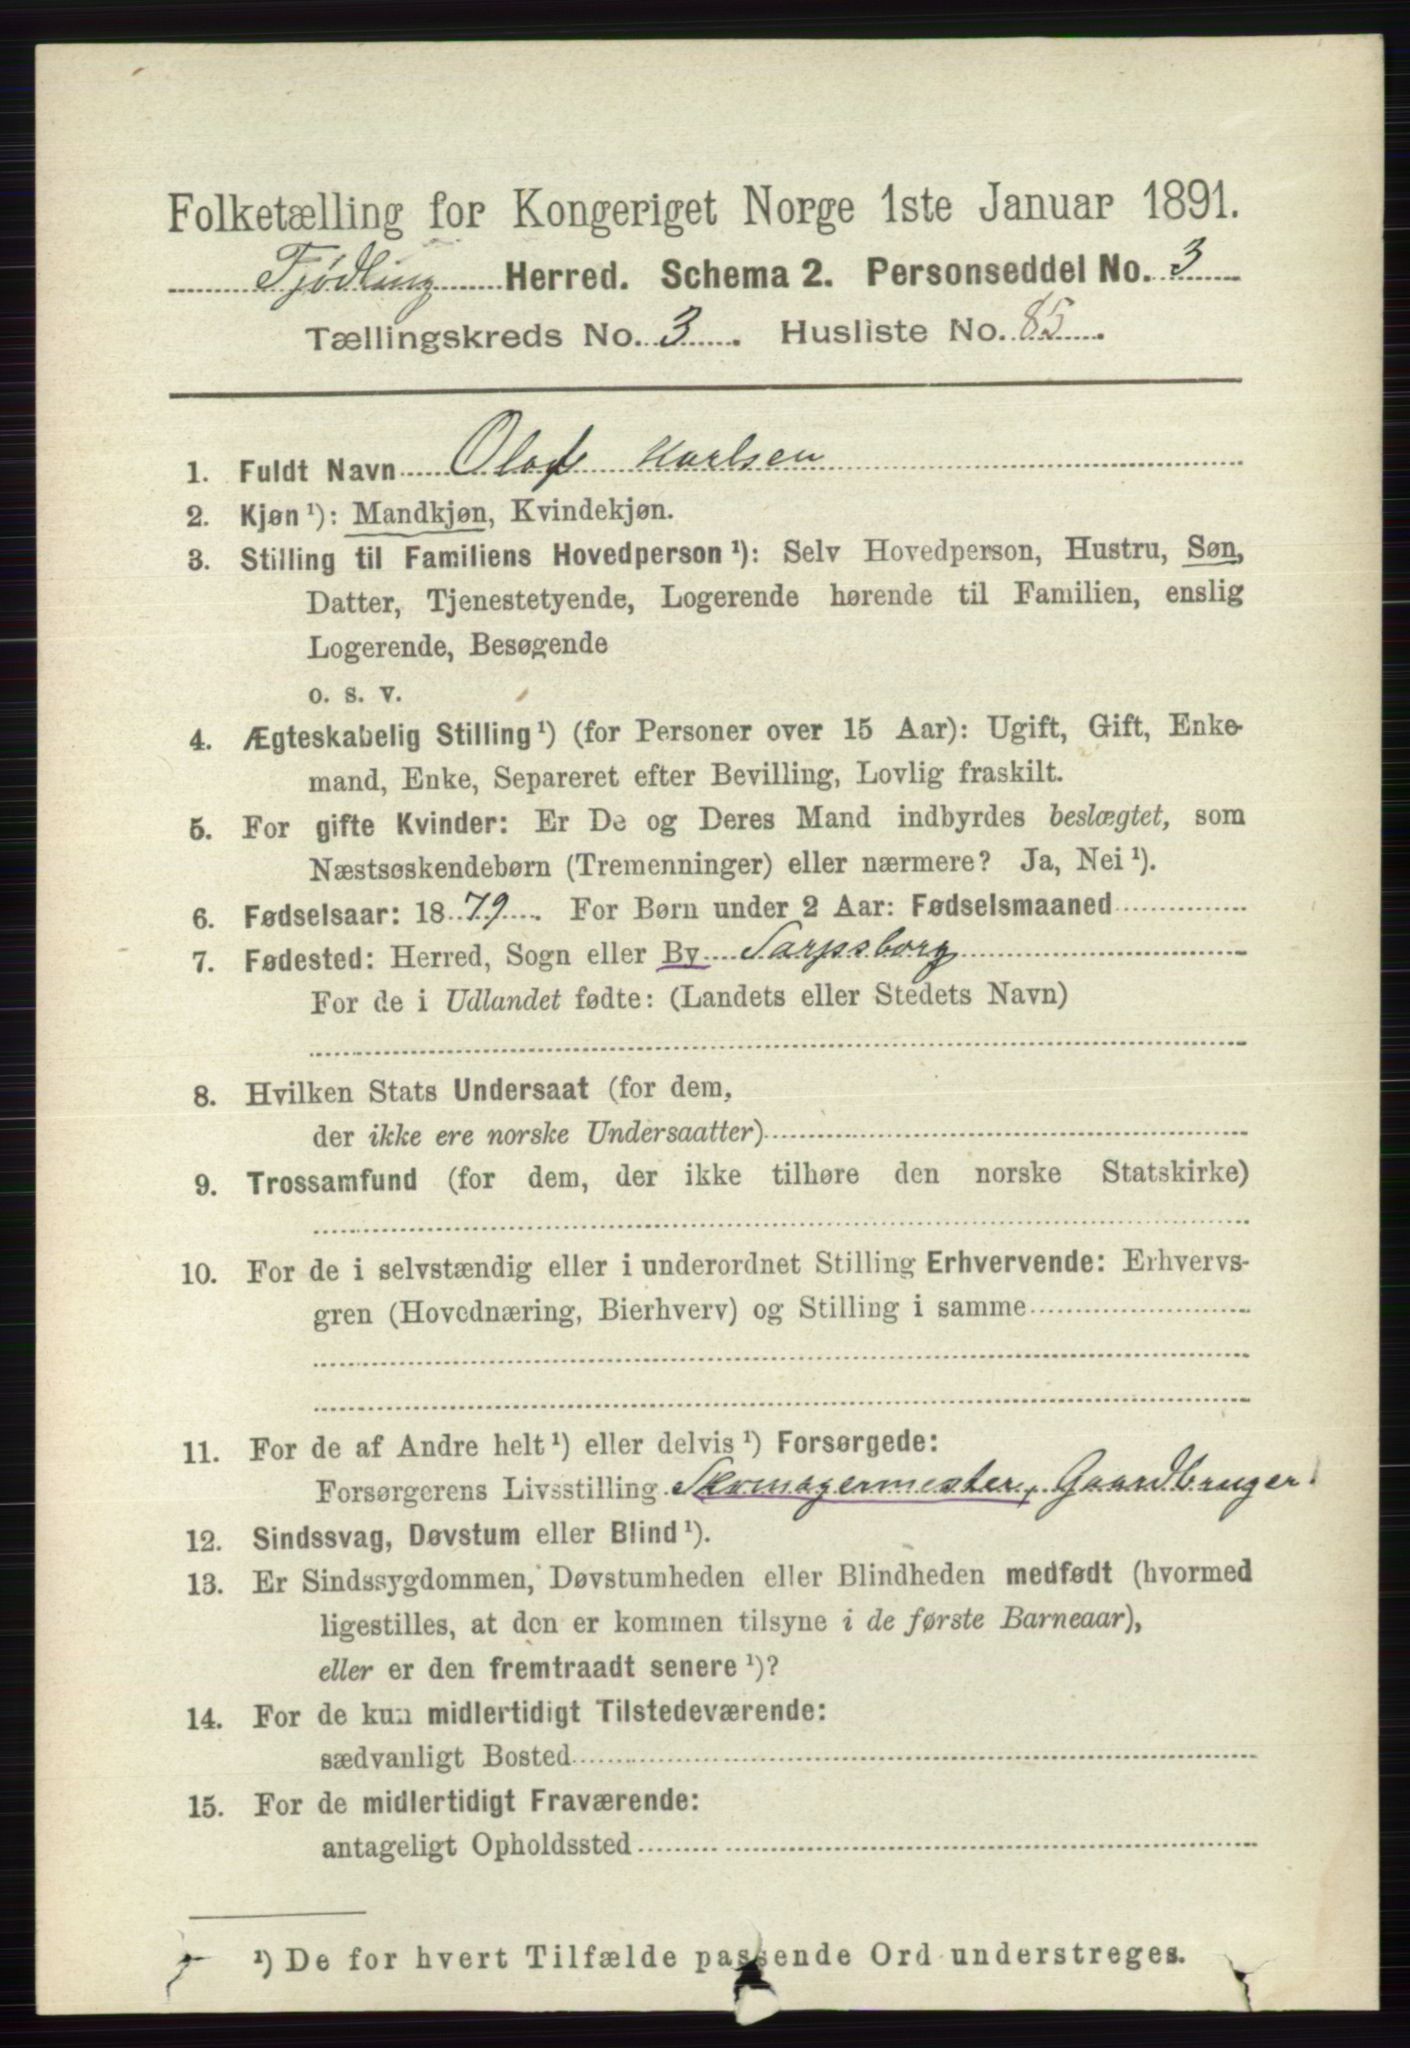 Folketælling for Kongeriget Norge 1ste Januar 1891.
Tjødling Herred. Schema 2. Personseddel No. 3
Tællingskreds No. 3. Husliste No. 85.
1. Fuldt Navn Olaf Karlsen
2. Kjøn ¹): Mandkjøn, Kvindekjøn.
3. Stilling til Familiens Hovedperson ¹): Selv Hovedperson, Hustru, Søn,
Datter, Tjenestetyende, Logerende hørende til Familien, enslig
Logerende, Besøgende
o. s. v.
4. Ægteskabelig Stilling ¹) (for Personer over 15 Aar): Ugift, Gift, Enke-
mand, Enke, Separeret efter Bevilling, Lovlig fraskilt.
5. For gifte Kvinder: Er De og Deres Mand indbyrdes beslægtet, som
Næstsøskendebørn (Tremenninger) eller nærmere? Ja, Nei ¹).
6. Fødselsaar: 1879. For Børn under 2 Aar: Fødselsmaaned
7. Fødested: Herred, Sogn eller By Sarpsborg
For de i Udlandet fødte: (Landets eller Stedets Navn)
8. Hvilken Stats Undersaat (for dem,
der ikke ere norske Undersaatter)
9. Trossamfund (for dem, der ikke tilhøre den norske Statskirke)
10. For de i selvstændig eller i underordnet Stilling Erhvervende: Erhvervs-
gren (Hovednæring, Bierhverv) og Stilling i samme
11. For de af Andre helt ¹) eller delvis ¹) Forsørgede:
Forsørgerens Livsstilling Skomagermester, Gaardbruger
12. Sindssvag, Døvstum eller Blind ¹).
13. Er Sindssygdommen, Døvstumheden eller Blindheden medfødt (hvormed
ligestilles, at den er kommen tilsyne i de første Barneaar),
eller er den fremtraadt senere ¹)?
14. For de kun midlertidigt Tilstedeværende:
sædvanligt Bosted
15. For de midlertidigt Fraværende:
antageligt Opholdssted
¹) De for hvert Tilfælde passende Ord understreges.